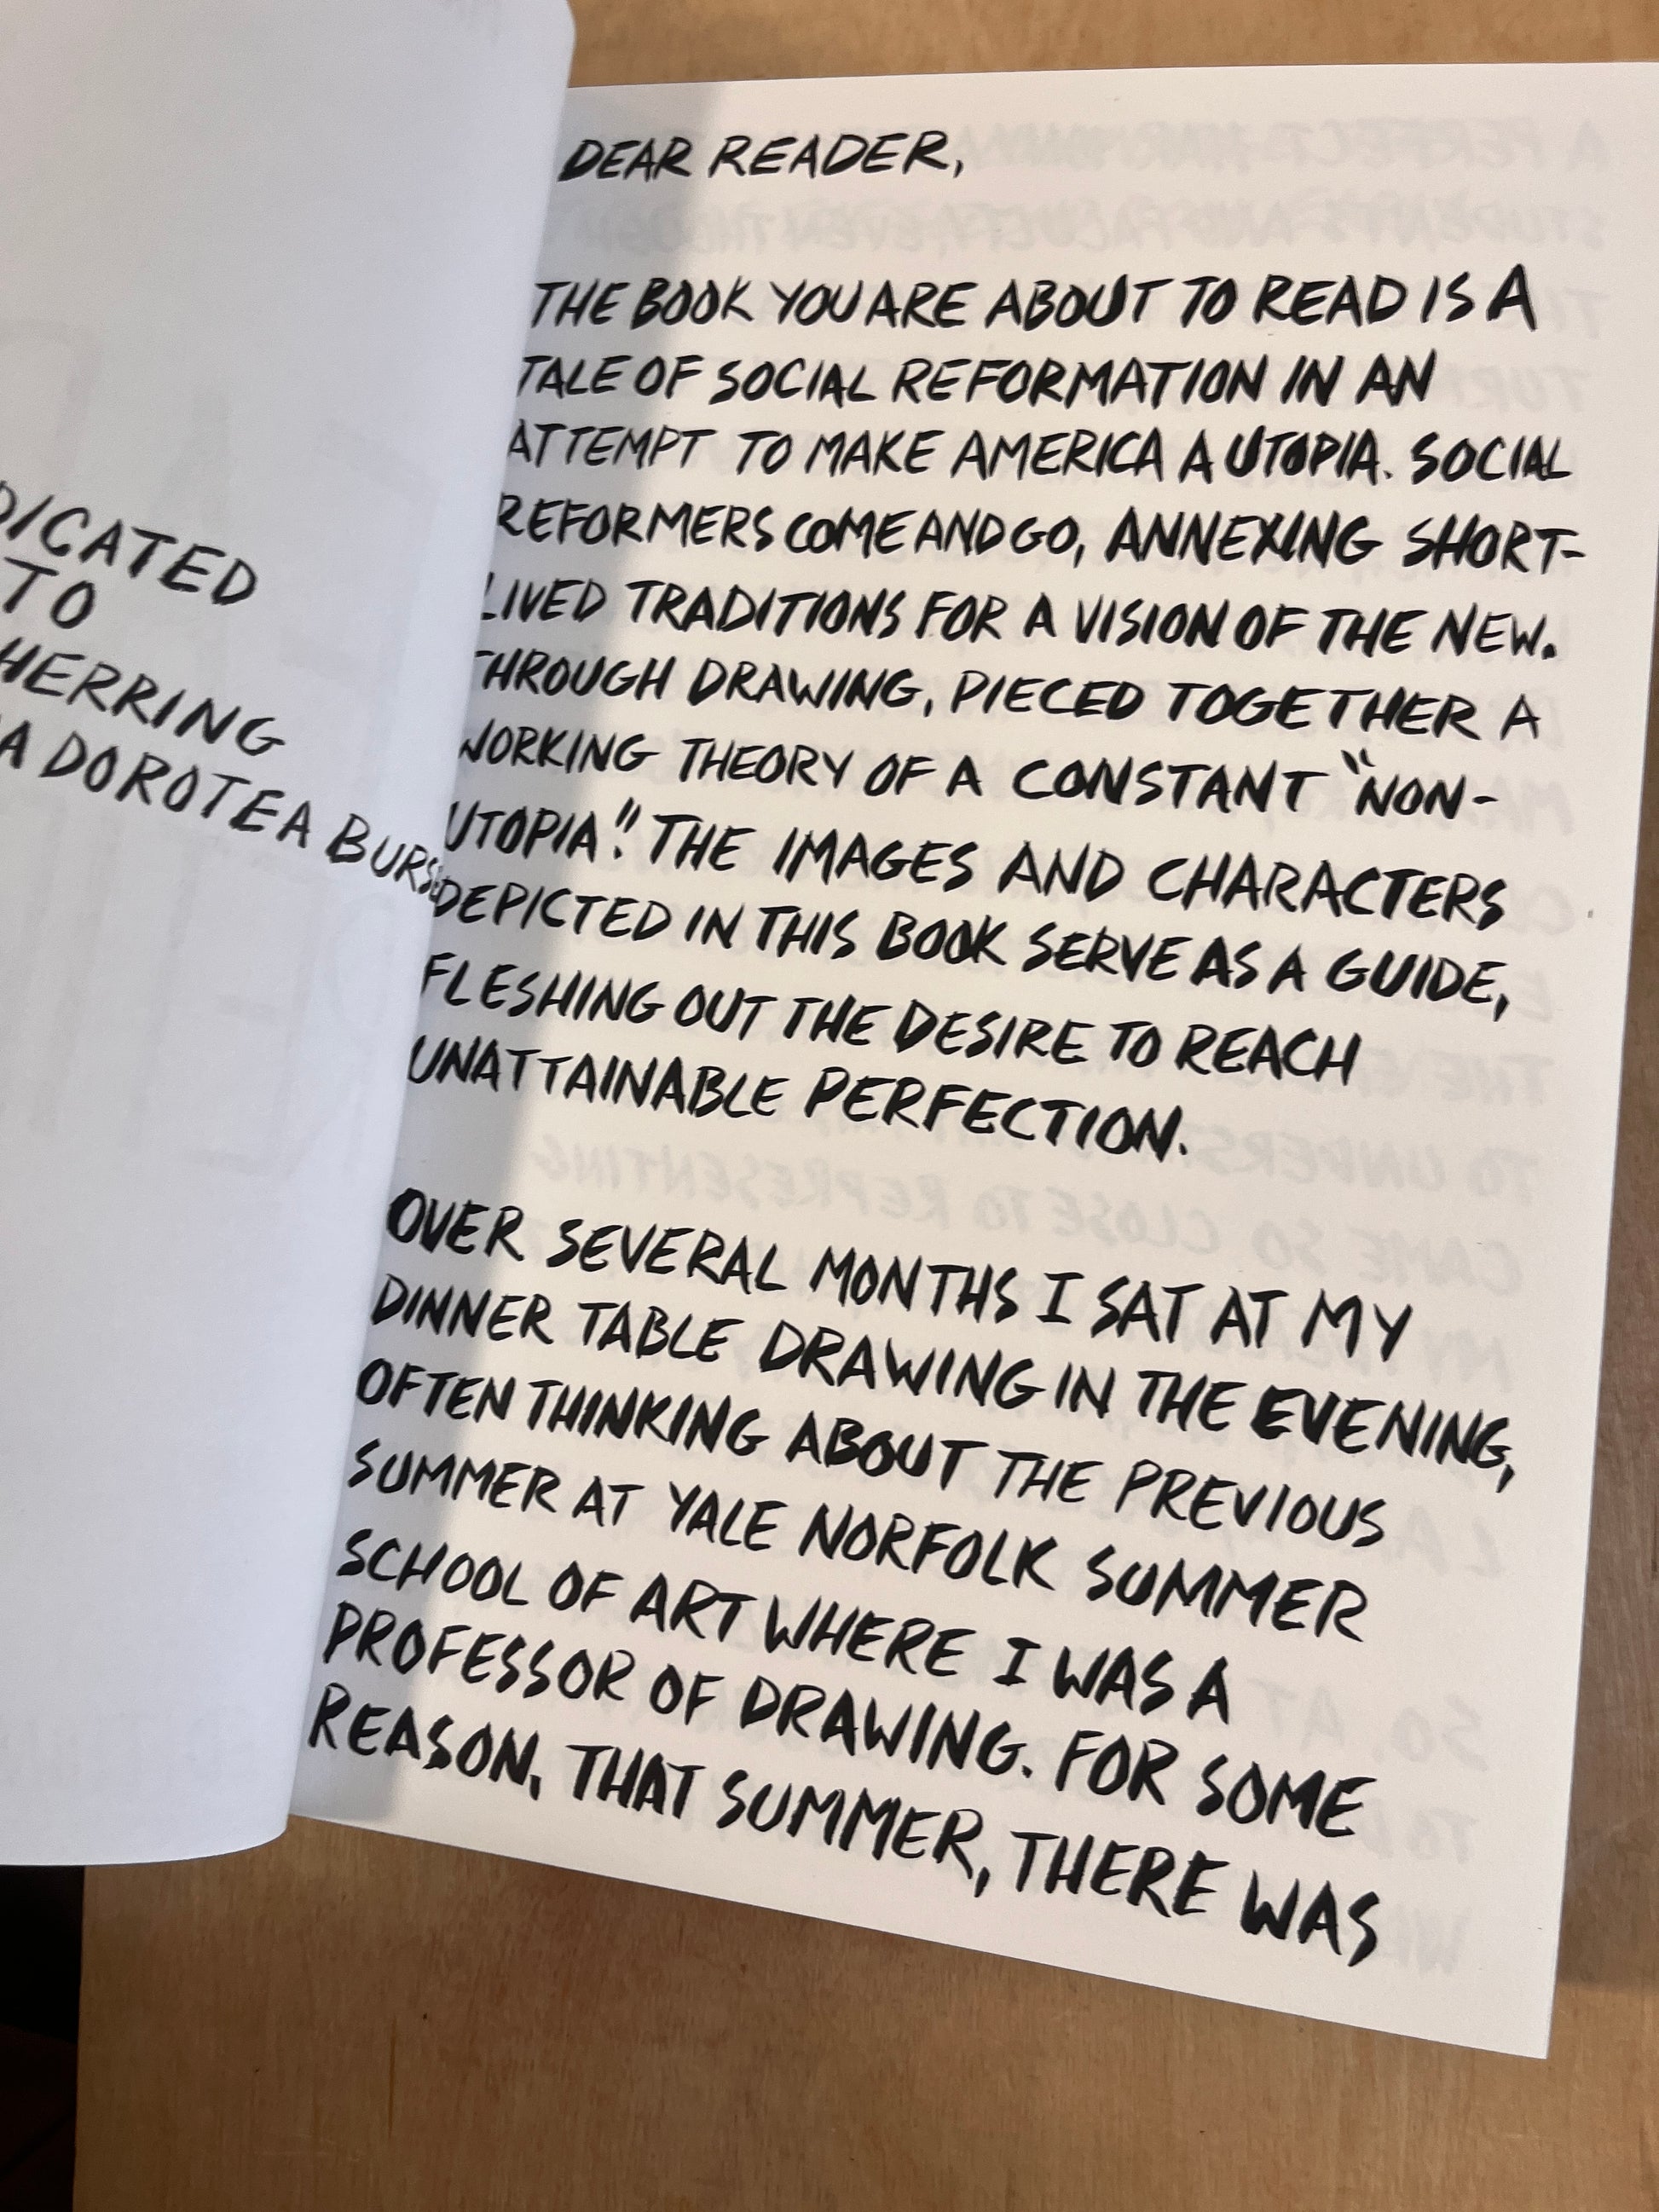 DICATED
TO
HERRING
A DOROTEA BURS
DEAR READER,
THE BOOK YOU ARE ABOUT TO READ IS A
TALE OF SOCIAL REFORMATION IN AN
ATTEMPT TO MAKE AMERICA A UTOPIA. SOCIAL
REFORMERS COME AND GO, ANNEXING SHORT-
LIVED TRADITIONS FOR A VISION OF THE NEW.
THROUGH DRAWING, PIECED TOGETHER A
WORKING THEORY OF A CONSTANT "NON-
UTOPIA". THE IMAGES AND CHARACTERS
DEPICTED IN THIS BOOK SERVE AS A GUIDE,
FLESHING OUT THE DESIRE TO REACH
UNATTAINABLE PERFECTION.
OVER SEVERAL MONTHS I SAT AT MY
DINNER TABLE DRAWING IN THE EVENING,
OFTEN THINKING ABOUT THE PREVIOUS
SUMMER AT YALE NORFOLK SUMMER
SCHOOL OF ART WHERE I WAS A
PROFESSOR OF DRAWING. FOR SOME
REASON, THAT SUMMER, THERE WAS